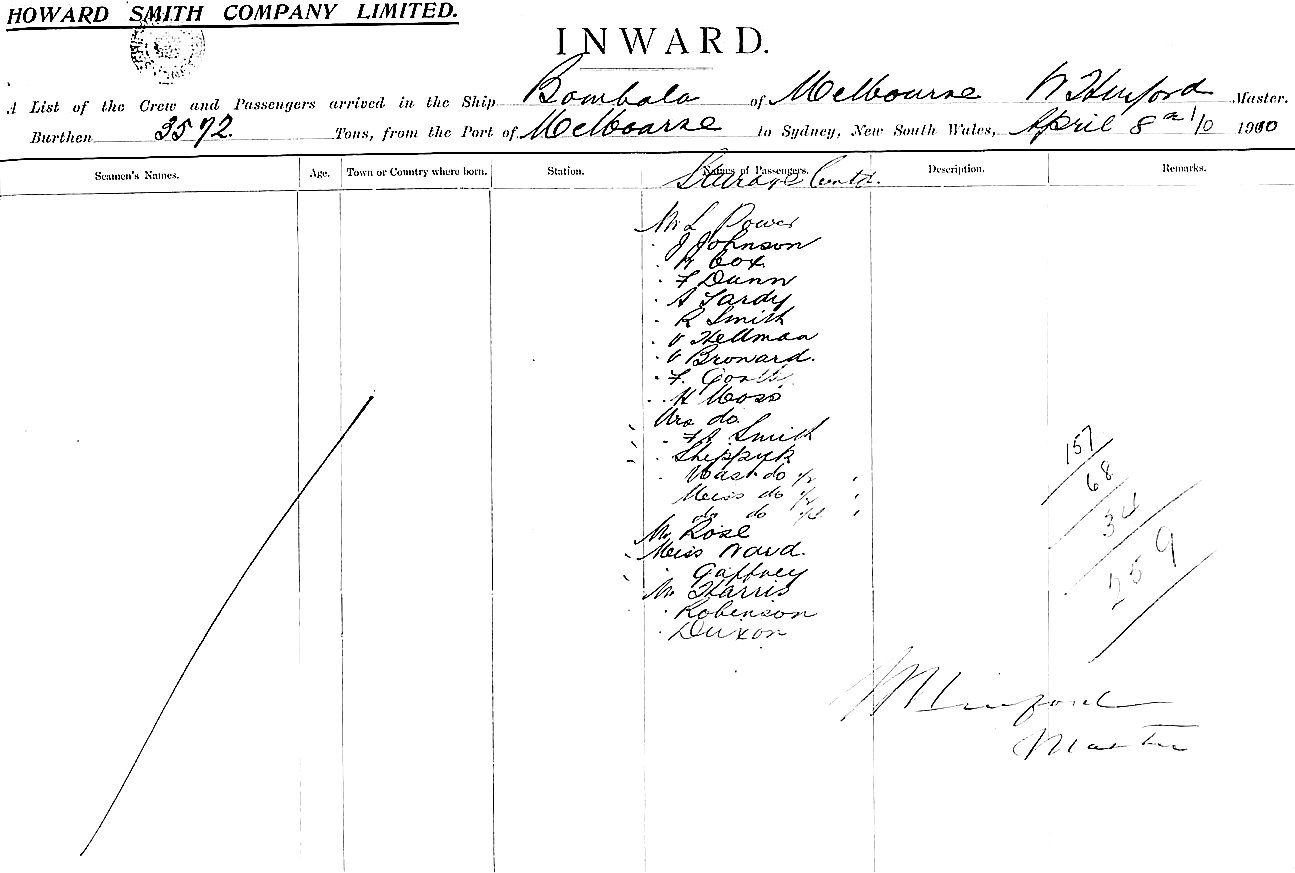 HOWARD SMITH COMPANY LIMITED.
INWARD.
A List of the Crew and Passengers arrived in the Ship Bombala of Melbourne Master.
Burthen 3572. Tons, from the Port of Melbourne to Sydney, New South Wales, April 8 1910
Seamen's Names. Age. Town or Country where born. Station. Names of Passengers. Description. Remarks.
Steerage Contd.
Mr L Power
" J Johnson
" Cox
" F Dunn
" A Tardy
" R Smith
" Hellman
" Broward.
" F.
" H Moss
Mrs do
" Smith
Mast do
Miss do
do do
Mr Rose
Miss Ward.
" Gaffney
Mr Harris
" Robinson
" Dixon
157
68
34
259
Master